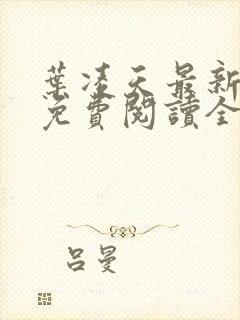 葉凌天最新
免費閱讀全
吕曼